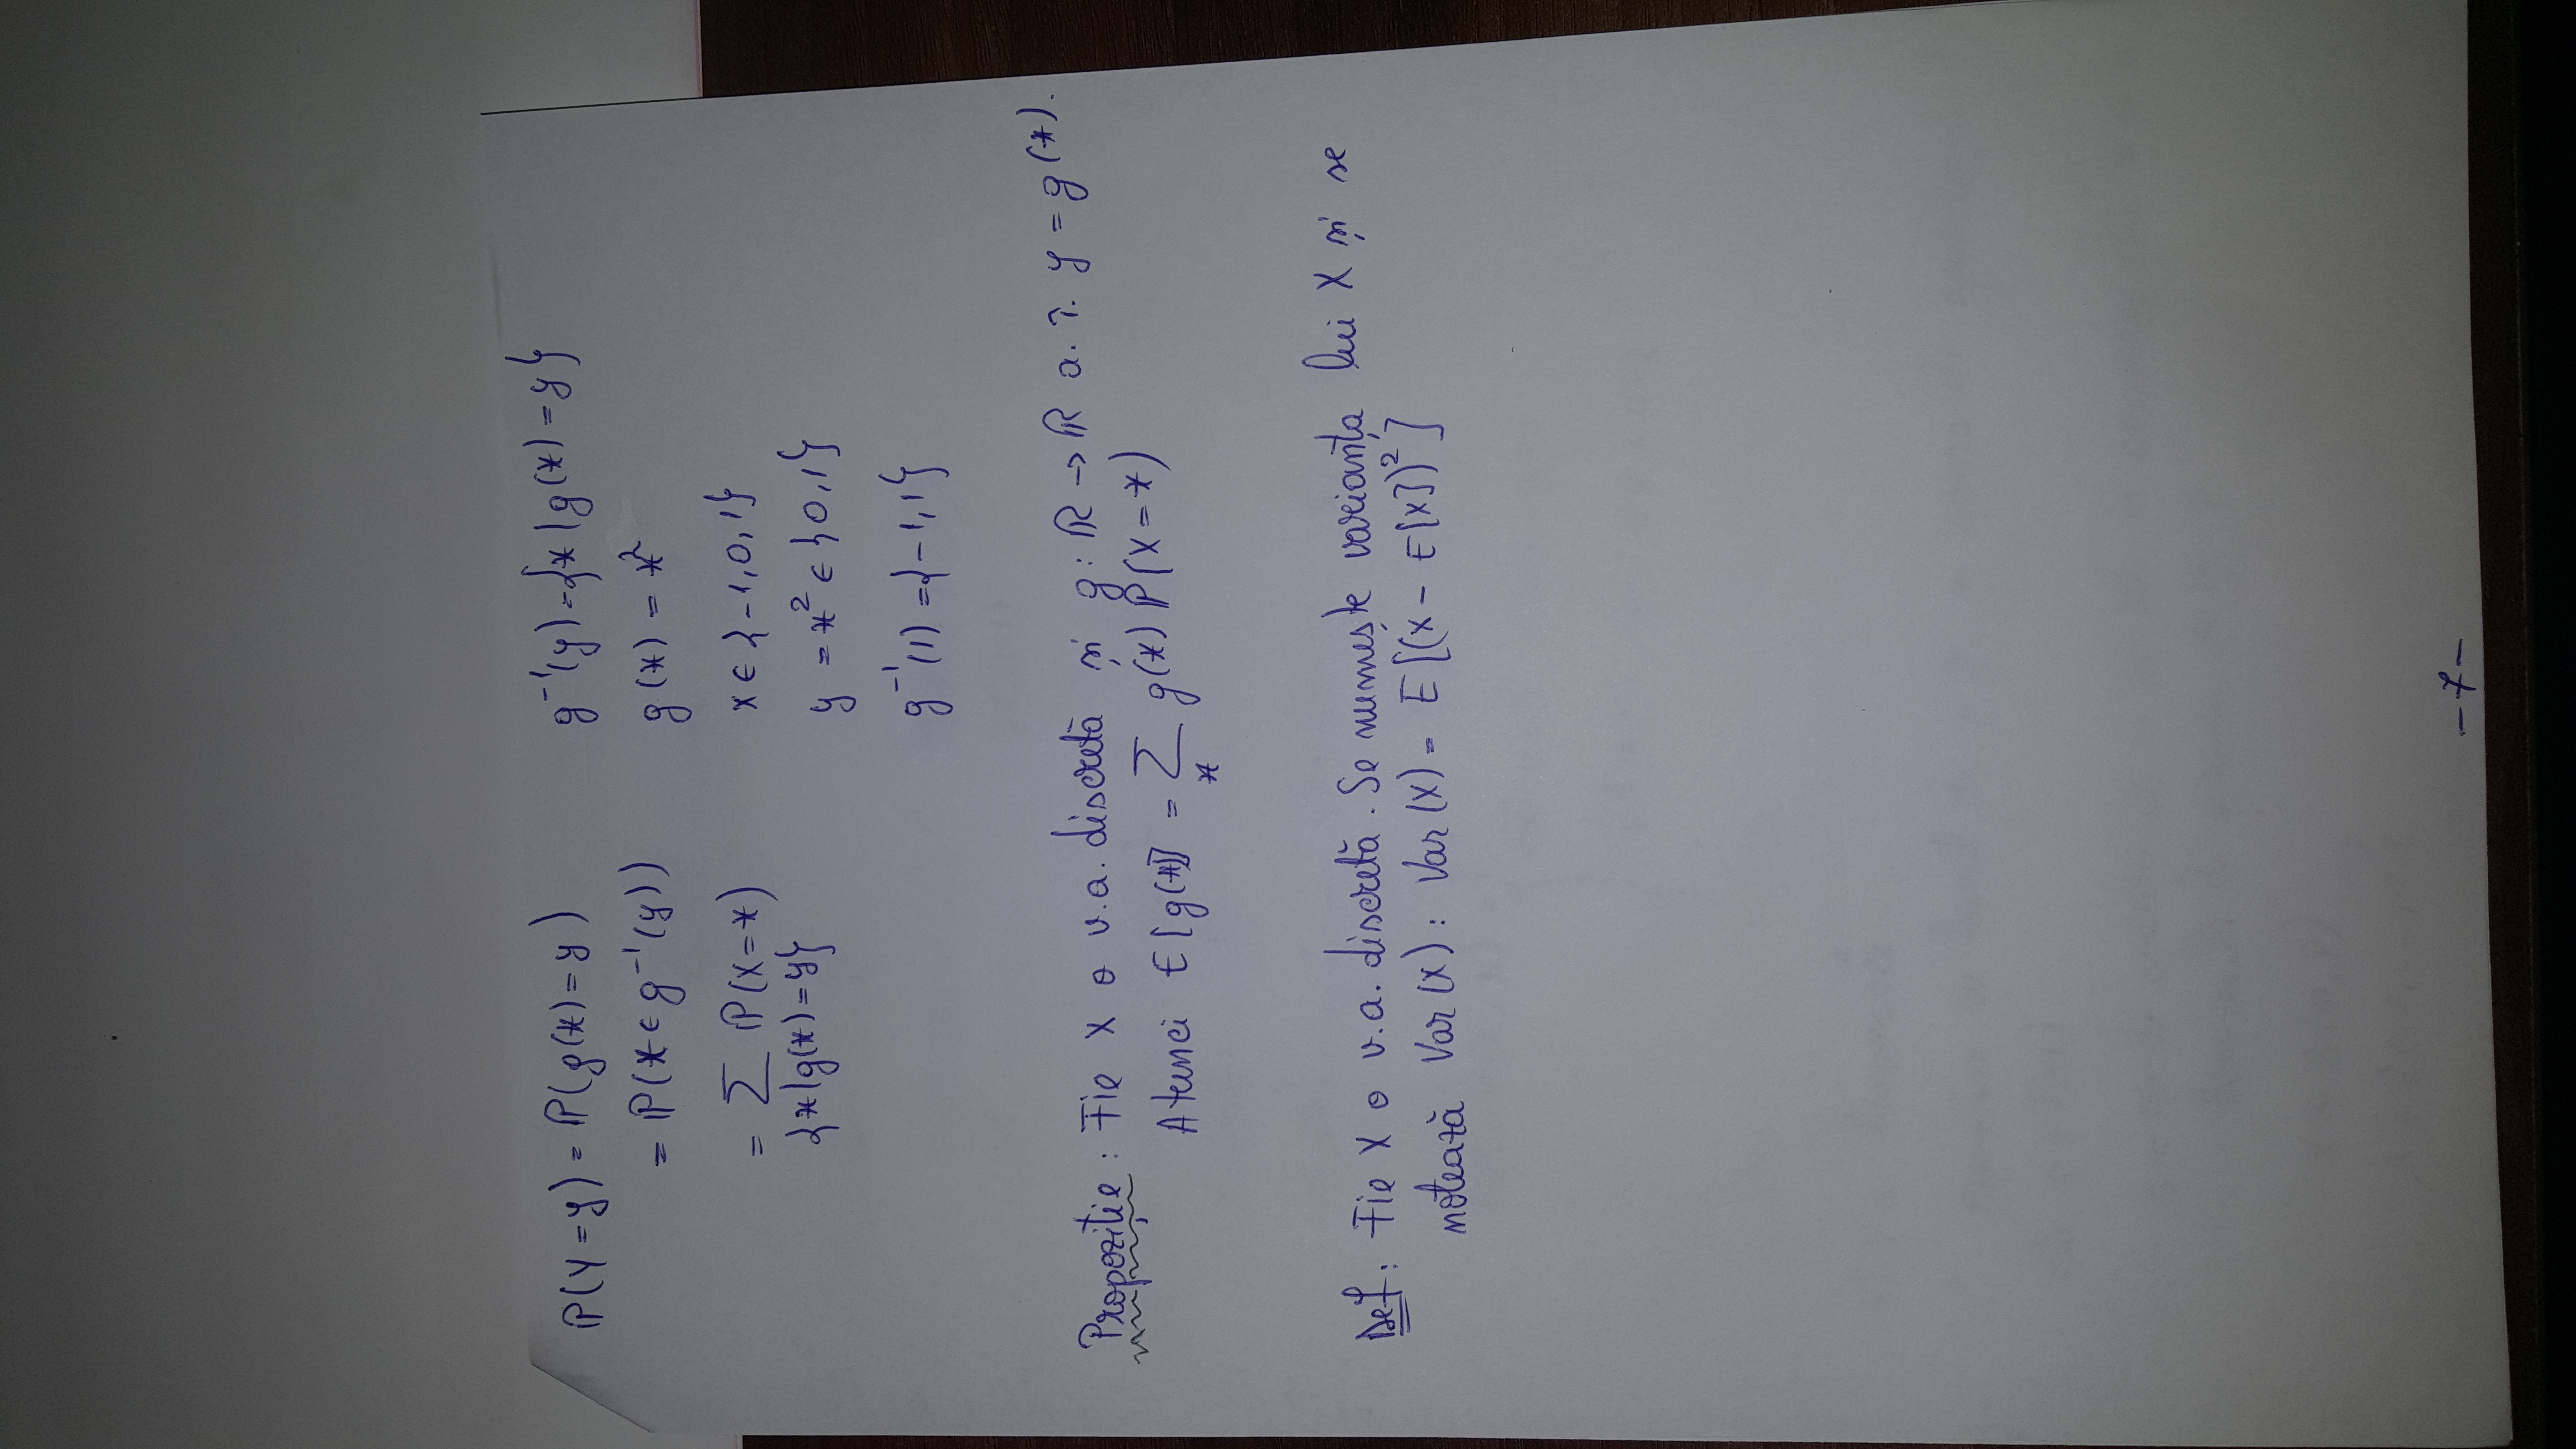 P(Y=y) = P(g(x)=y)
= P(x ∈ g⁻¹(y))
= Σ P(X=x)
{x|g(x)=y}
g⁻¹(y)={x|g(x)=y}
g(x) = x²
x ∈ {-1,0,1}
y = x² ∈ {0,1}
g⁻¹(1) = {-1,1}
Propoziție: Fie X o v.a. discretă și g: ℝ → ℝ a. î. y = g(x).
Atunci E[g(x)] = Σ g(x) P(X=x)
x
Def: Fie X o v.a. discretă. Se numește varianța lui X și se
notează Var(X): Var(X) = E[(X - E[X])²]
-7-